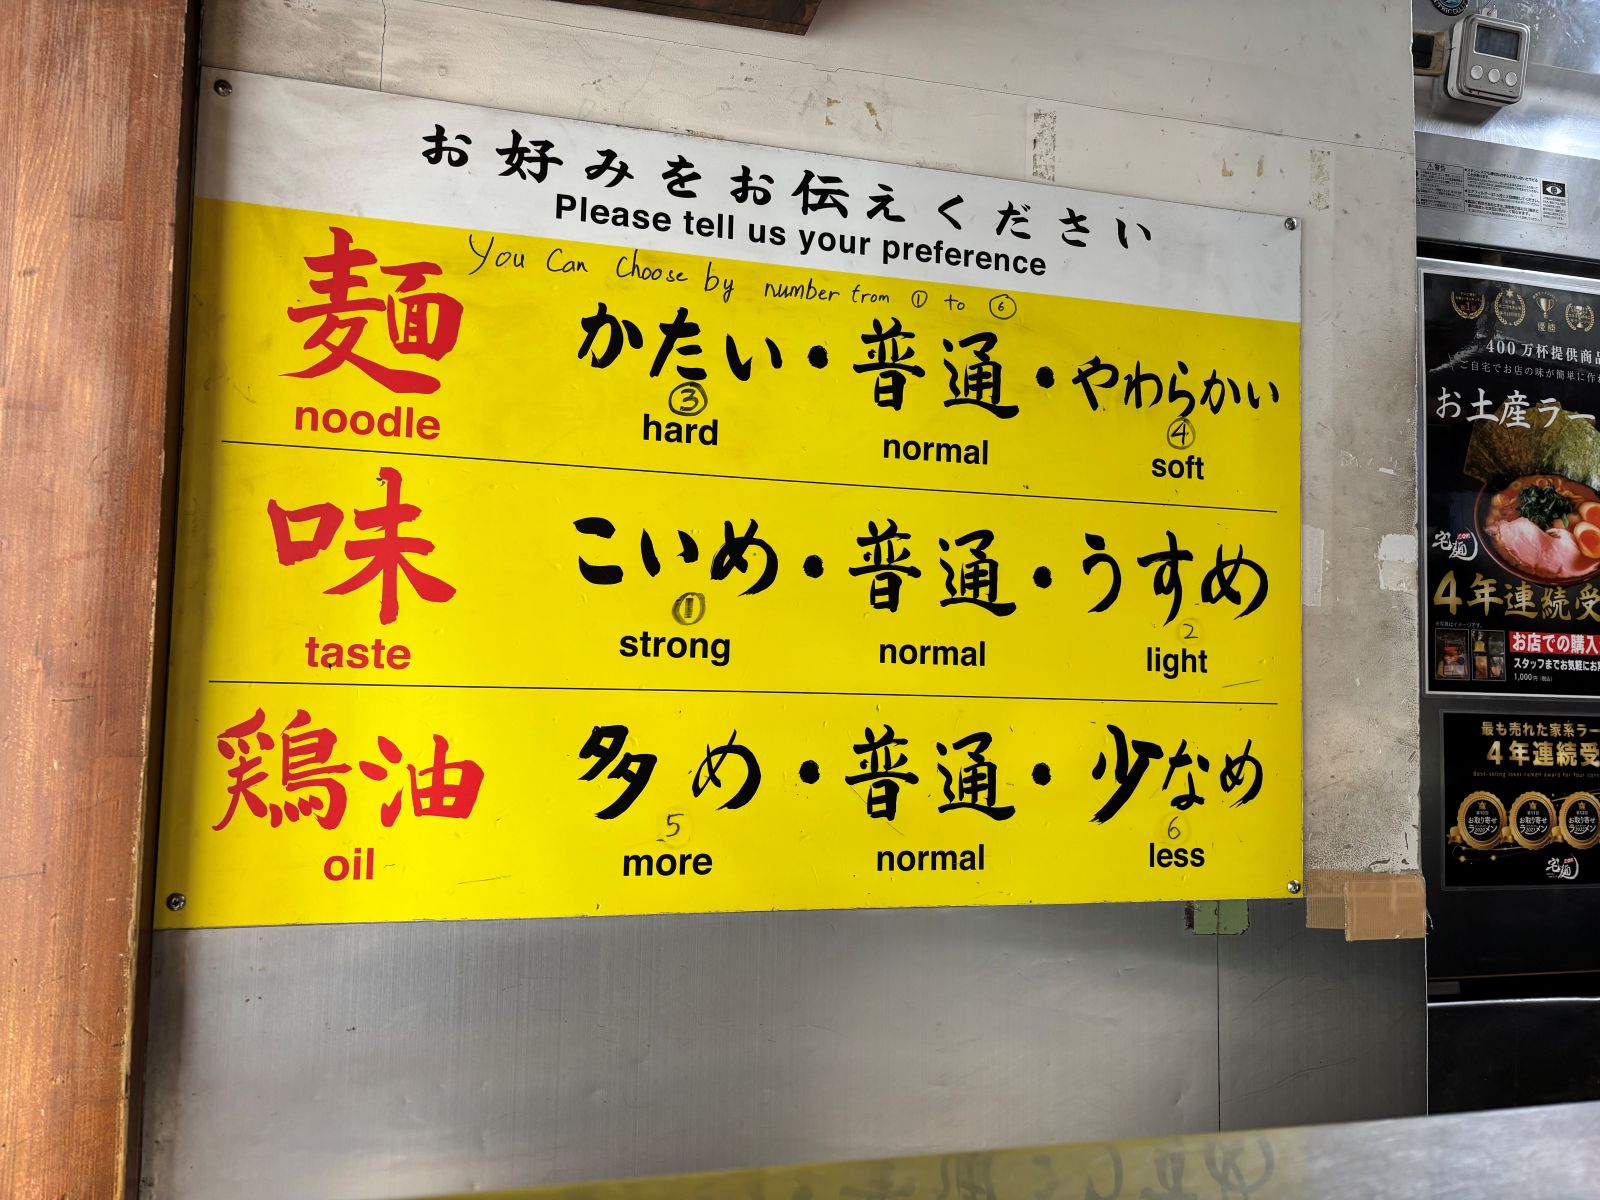 お好みをお伝えください
Please tell us your preference
You can choose by number from ① to ⑥
麺 かたい・普通・やわらかい
③ ④
noodle hard normal soft
味 こいめ・普通・うすめ
① 2
taste strong normal light
鶏油 多め・普通・少なめ
5 6
oil more normal less
優勝
400万杯提供商品
ご自宅でお店の味が簡単に
お土産ラー
宅麺.com
4年連続受
お店での購入
スタッフまでお気軽にお
1,000円(税込)
最も売れた家系ラー
4年連続受
Best-selling iekei-ramen award for four
お取り寄せ
お取り寄せ
お取り寄せ
宅麺.com